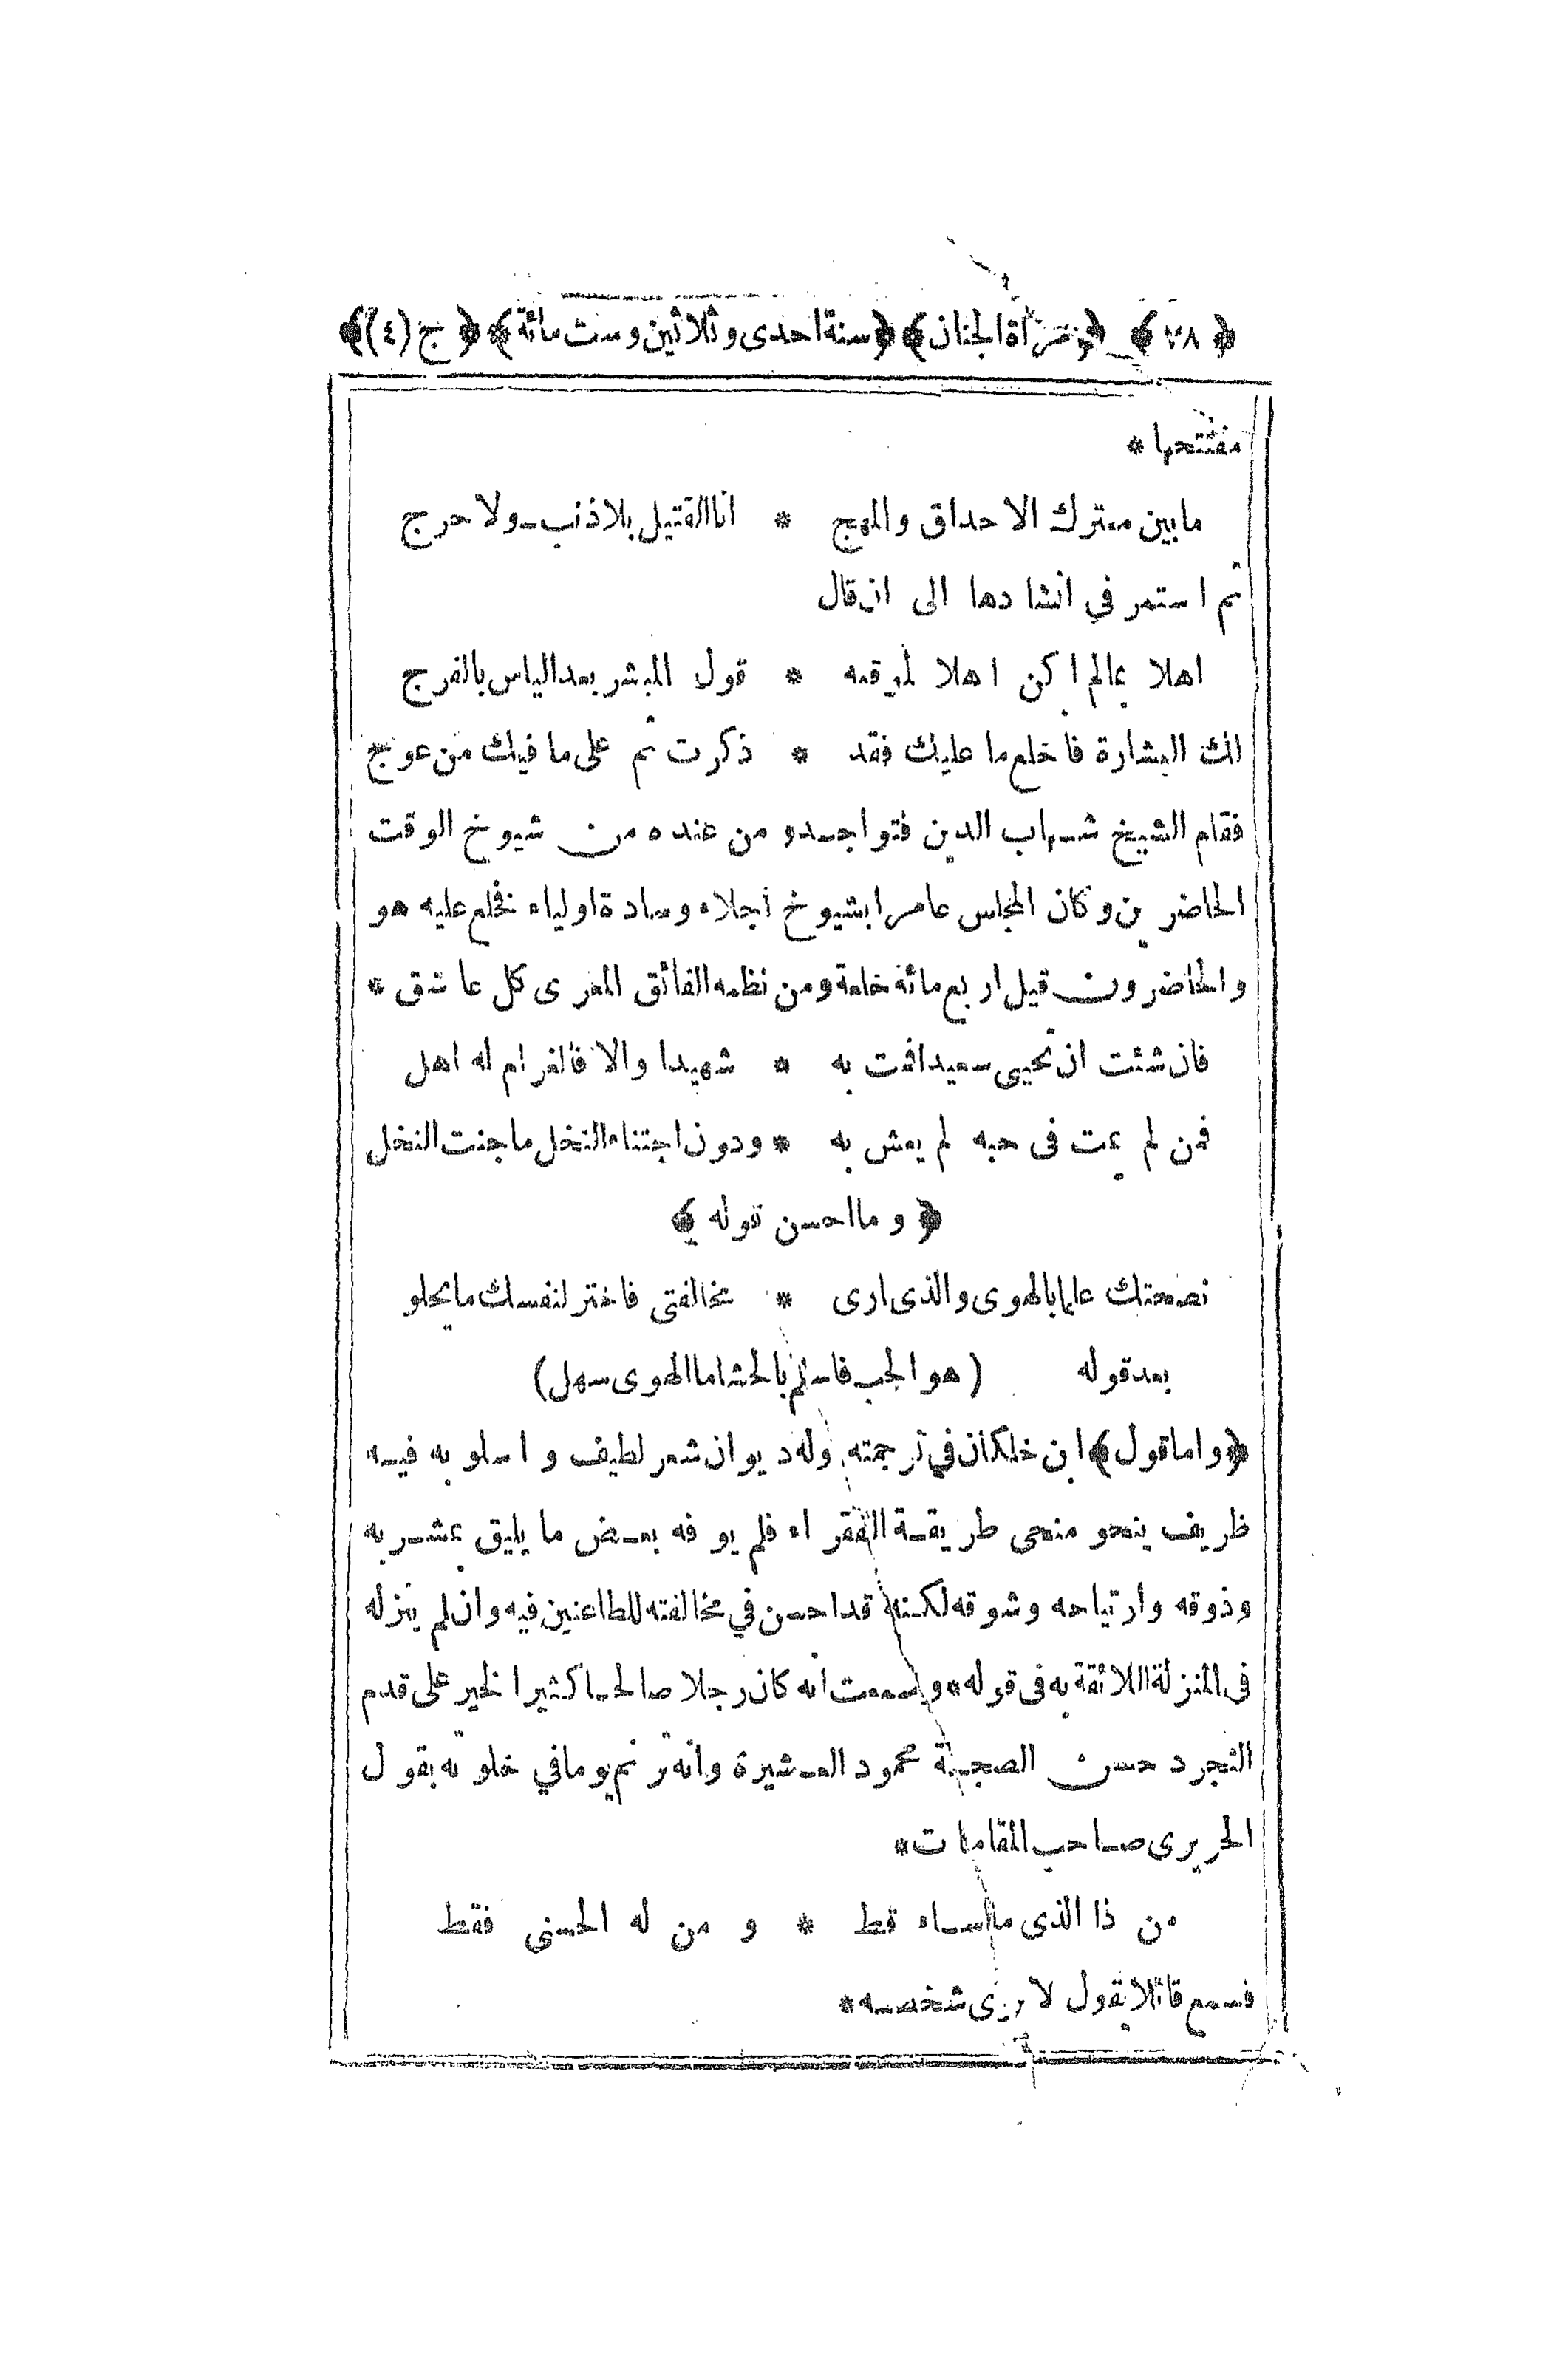 ﴿ ٧٨ ﴾ ﴿ مرآة الجنان ﴾ ﴿ سنة احدى وثلاثين وست مائة ﴾ ﴿ ج (٤) ﴾
مفتتحها *
مابين معترك الاحداق والمهج * انا القتيل بلا ذنب ولا حرج
ثم استمر في انشادها الى ان قال
اهلا بمالم اكن اهلا لموقعه * قول المبشر بعد الياس بالفرج
لك البشارة فاخلع ما عليك فقد * ذكرت ثم على ما فيك من عوج
فقام الشيخ شهاب الدين فتواجد و من عنده من شيوخ الوقت
الحاضرين وكان المجلس عامرا بشيوخ اجلاء وسادة اولياء فخلع عليه هو
والحاضرون قيل اربع مائة خلعة ومن نظمه الفائق المغرى كل عاشق *
فان شئت ان تحيى سعيدا فمت به * شهيدا والا فالغرام له اهل
فمن لم يمت فى حبه لم يعش به * ودون اجتناء النخل ما جنت النخل
﴿ و ما احسن قوله ﴾
نصحتك علما بالهوى والذى ارى * مخالفتى فاختر لنفسك ما يحلو
بعد قوله (هو الحب فاسلم بالحشا ما الهوى سهل)
﴿ و اما قول ﴾ ابن خلكان في ترجمته وله ديوان شعر لطيف و اسلوبه فيه
ظريف ينحو منحى طريقة الفقراء فلم يوفه بعض ما يليق بمشربه
وذوقه وارتياحه وشوقه لكنه قد احسن في مخالفته للطاعنين فيه وان لم ينزله
فى المنزلة اللائقة به فى قوله * و سمعت انه كان رجلا صالحا كثير الخير على قدم
التجرد حسن الصحبة محمود العشيرة وانه ترنم يوما في خلوته بقول
الحريرى صاحب المقامات *
من ذا الذى ما ساء قط * و من له الحسنى فقط
فسمع قائلا يقول لا يرى شخصه *